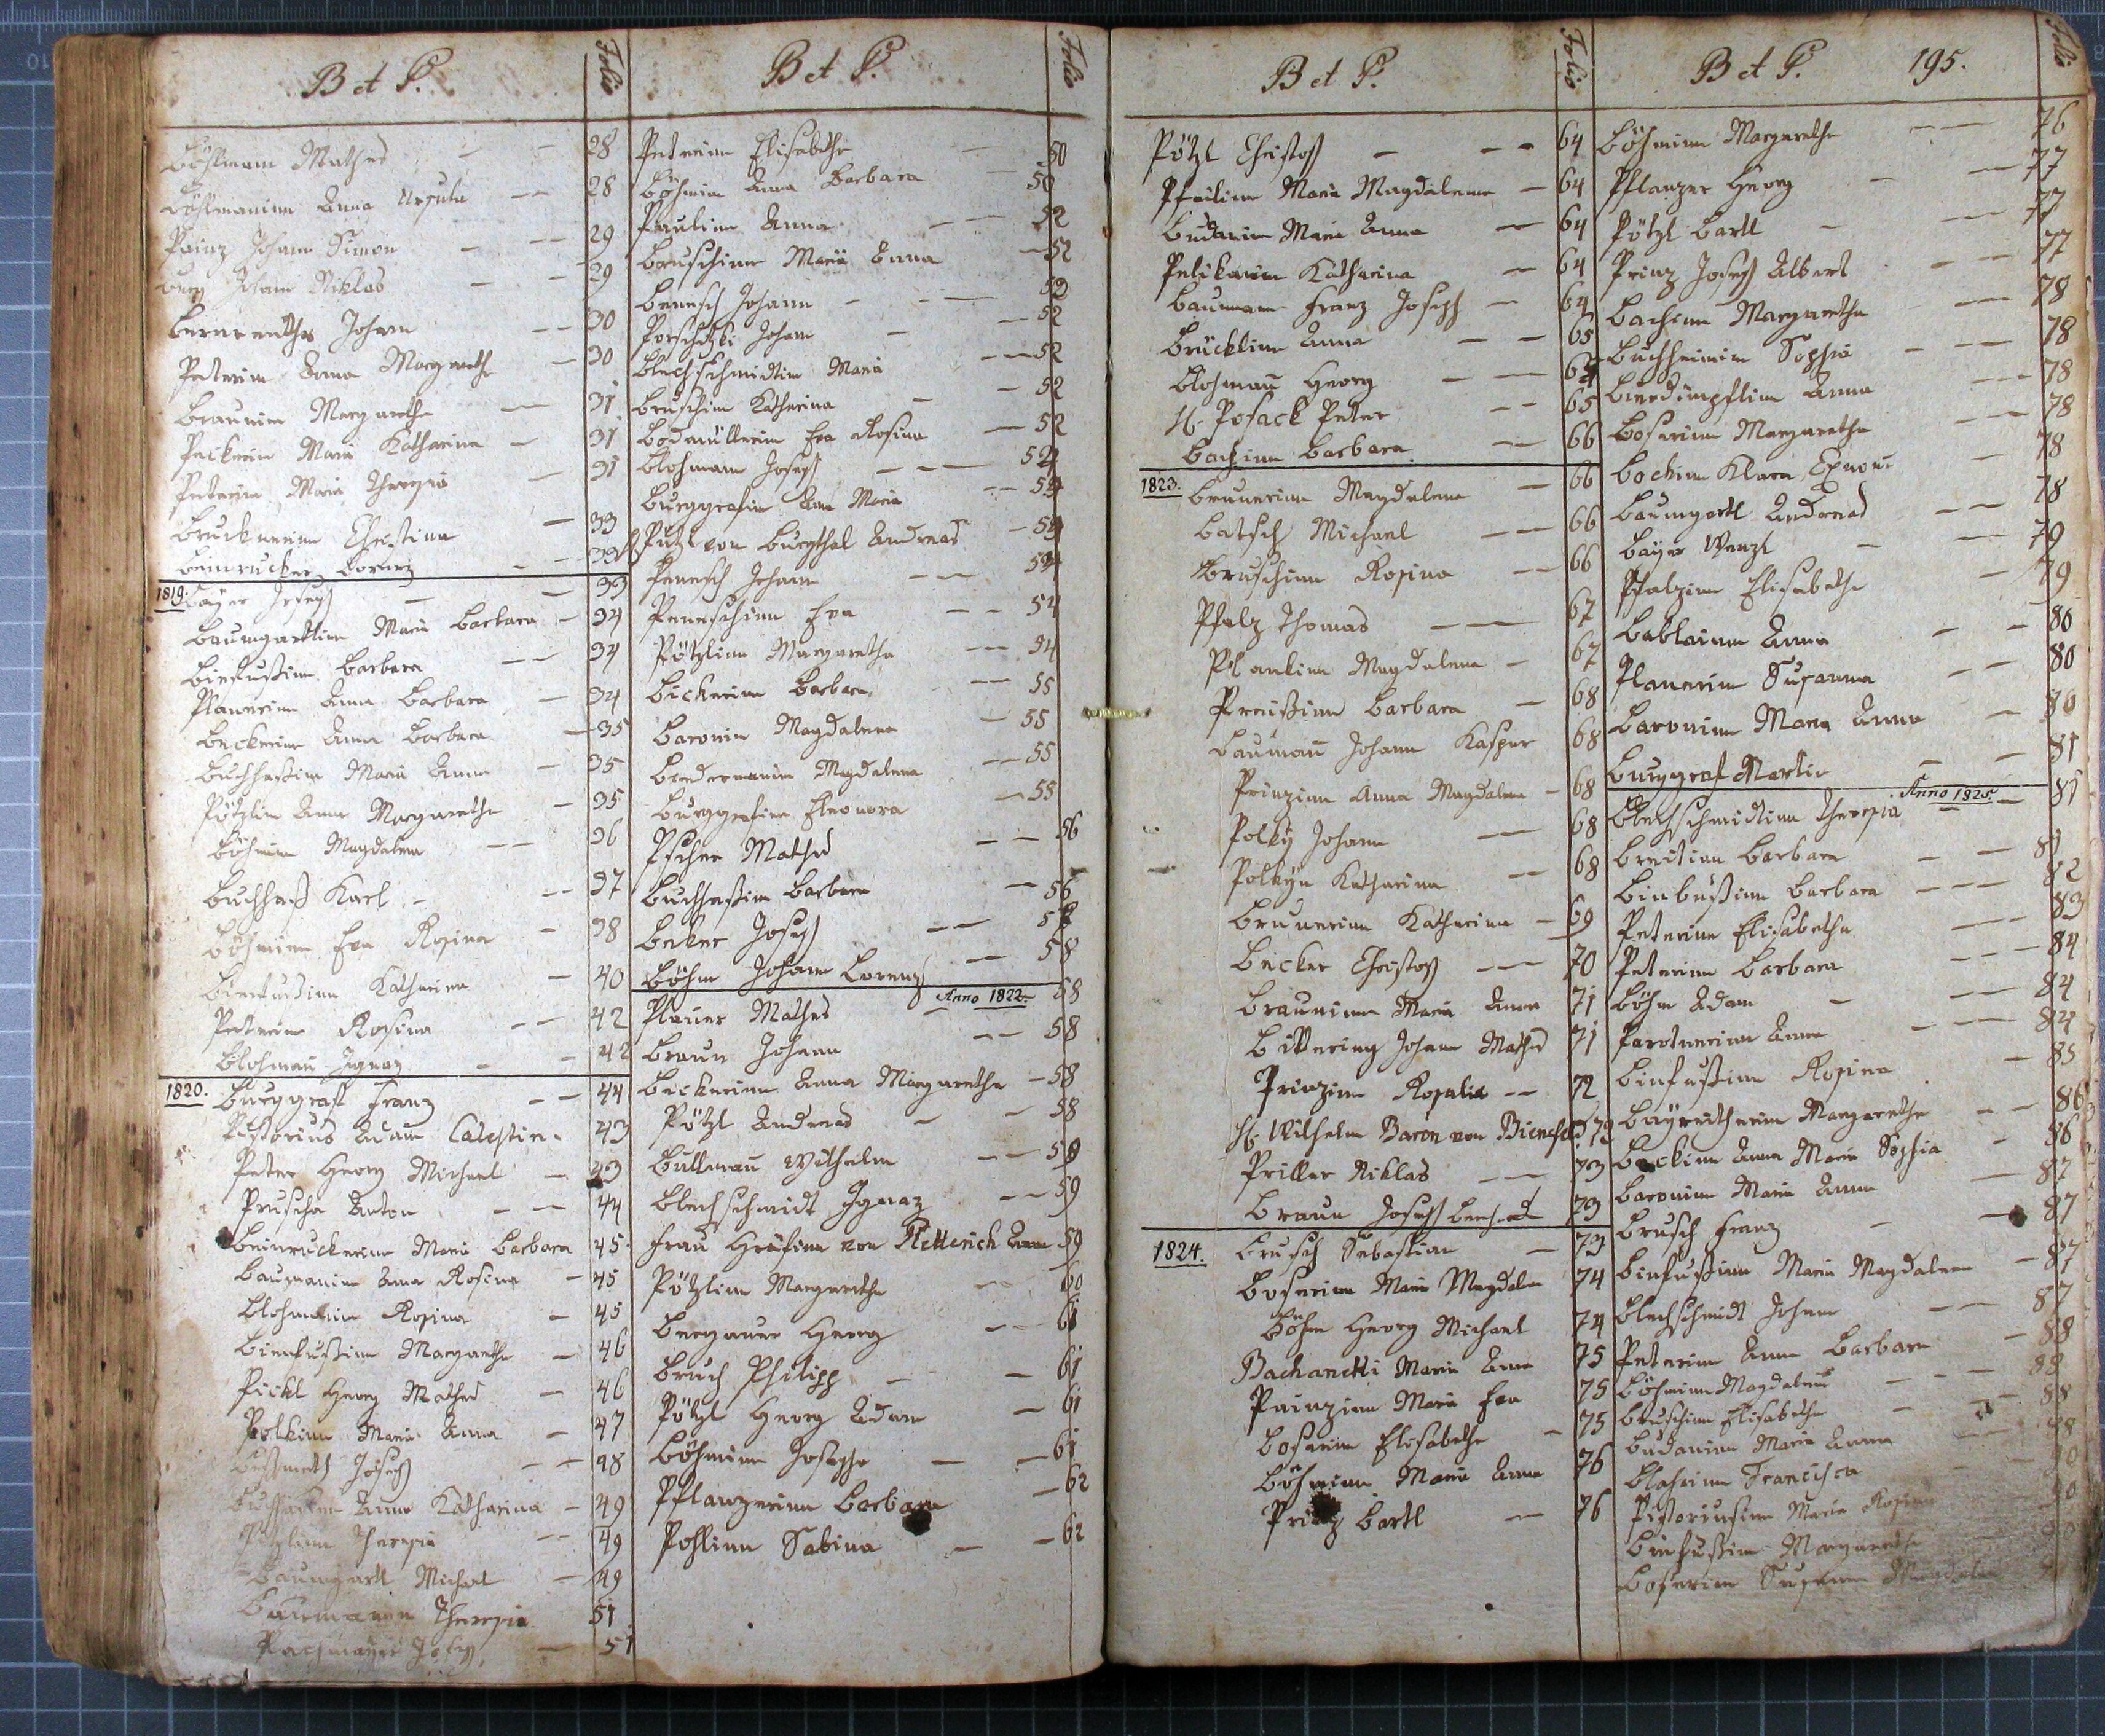 B et P. Folio
Böhmann Mathes 28
Böhmaninn Anna Ursula 28
Painz Johann Simon 29
Burg Johann Niklas 29
Johann 30
Peterinn Anna Margareth 30
Braunin Margaretha 31
Peckerin Maria Katharina 31
Peterinn Maria Theresia 31
Brucknerinn Christina 33
Beinrucker Lorenz 33
1819. Bayer Joseph 33
Baumgartlinn Maria Barbara 34
Binfußinn Barbara 34
Planerinn Anna Barbara 34
Beckerinn Anna Barbara 35
Buchhaßinn Maria Anna 35
Pötzlin Anna Margaretha 35
Böhminn Magdalena 36
Buchhaß Karl 37
Böhminn Eva Rosina 38
Binfußinn Katharina 40
Peterinn Rosina 42
Blohmañ Ignaz 42
1820. Burggraf Franz 44
Pistorius Adam Calestin 43
Peter Georg Michael 43
Pruscha Anton 44
Beinruckerinn Maria Barbara 45
Baumanin Anna Rosina 45
Blohmaninn Rosina 45
Bienfußinn Margaretha 46
Pickl Georg Mathes 46
Polkinn Maria Anna 47
Joseph 48
Anna Katharina 49
Pötzlinn Theresia 49
Baumgartl Michael 49
Baumanin Theresia 51
Joseph 51
B et P. Folio
Peterinn Elisabetha 50
Böhminn Anna Barbara 50
Paulinn Anna 52
Bruschinn Maria Anna 52
Benesch Johann 52
Porschitzki Johann 52
Blechschmidtin Maria 52
Bruschinn Katharina 52
Bodmüllerin Eva Rosina 52
Blohmann Joseph 52
Burggrafin Ana Maria 54
Putz von Burgthal Andreas 54
Penesch Johann 54
Peneschinn Eva 54
Pötzlinn Margaretha 54
Bickerinn Barbara 55
Baronin Magdalena 55
Biedermanin Magdalena 55
Burggrafinn Eleonora 55
Pscher Mathes 56
Buchhaßinn Barbara 56
Beker Joseph
Böhm Johann Lorenz 58
Anno 1822.
Planer Mathes 58
Braun Johann 58
Beckerinn Anna Margaretha 58
Pötzl Andreas 58
Bullmañ Wilhelm 59
Blechschmidt Ignaz 59
Frau Gräfinn von Petterich Anna 59
Pötzlinn Margaretha 60
Bergauer Georg 61
Bruch Philipp 61
Pötzl Georg Adam 61
Böhminn Josepha 61
Pflanzerinn Barbara 62
Pohlinn Sabina 62
B et P. Folio
Pötzl Christof 64
Pfeilinn Maria Magdalena 64
Budarinn Maria Anna 64
Pelikanin Katharina 64
Baumann Franz Joseph 64
Brücklinn Anna 65
Blohmañ Georg 65
H. Posack Peter 65
Bachinn Barbara 66
1823. Brunerinn Magdalena 66
Batsch Michael 66
Bruschinn Rosina 66
Pfalz Thomas 67
Plankinn Magdalena 67
Preußinn Barbara 68
Baumañ Johann Kasper 68
Prinzinn Anna Magdalena 68
Polky Johann 68
Polkyn Katharina 68
Brunerinn Katharina 69
Becker Christof 70
Brauninn Maria Anna 71
Bittering Johann Mathes 71
Prinzinn Rosalia 72
H. Wilhelm Baron von 73
Priller Niklas 73
Braun Joseph 73
1824. Brusch Sebastian 73
Boserinn Maria Magdalen 74
Böhm Georg Michael 74
Bachanetti Maria Anna 75
Painzinn Maria Eva 75
Boserinn Elisabetha 75
Böhminn Maria Anna 76
Prinz Bartl 76
B et P. 195. Folio
Böhminn Margaretha 76
Pflanzer Georg 77
Pötzl Bartl 77
Prinz Joseph Albert 77
Bachinn Margaretha 78
Buchheimin Sophia 78
Bierdimpflinn Anna 78
Boserinn Margaretha 78
Bochinn Klara 78
Baumgartl Andreas 78
Bayer Wenzl 79
Pfalzinn Elisabetha 79
Bablainn Anna 80
Planerinn Susanna 80
Baroninn Maria Anna 80
Burggraf Martin 81
Anno 1825.
Blechschmidtinn Theresia 81
Breitinn Barbara 81
Binbußinn Barbara 82
Peterinn Elisabetha 83
Peterinn Barbara 84
Böhm Adam 84
Anna 84
Binfußinn Rosina 85
Bayreitherinn Margaretha 86
Beckinn Anna Maria Sophia 86
Baroninn Maria Anna 87
Brusch Franz 87
Binfußinn Maria Magdalena 87
Blechschmidt Johann 87
Peterinn Anna Barbara 88
Böhminn Magdalena 88
Bruschinn Elisabetha 88
Budaninn Maria Anna 88
Francisca
Pistoriusinn Maria Rosina
Binfußinn Margaretha
Boserinn Susanna Magdalena